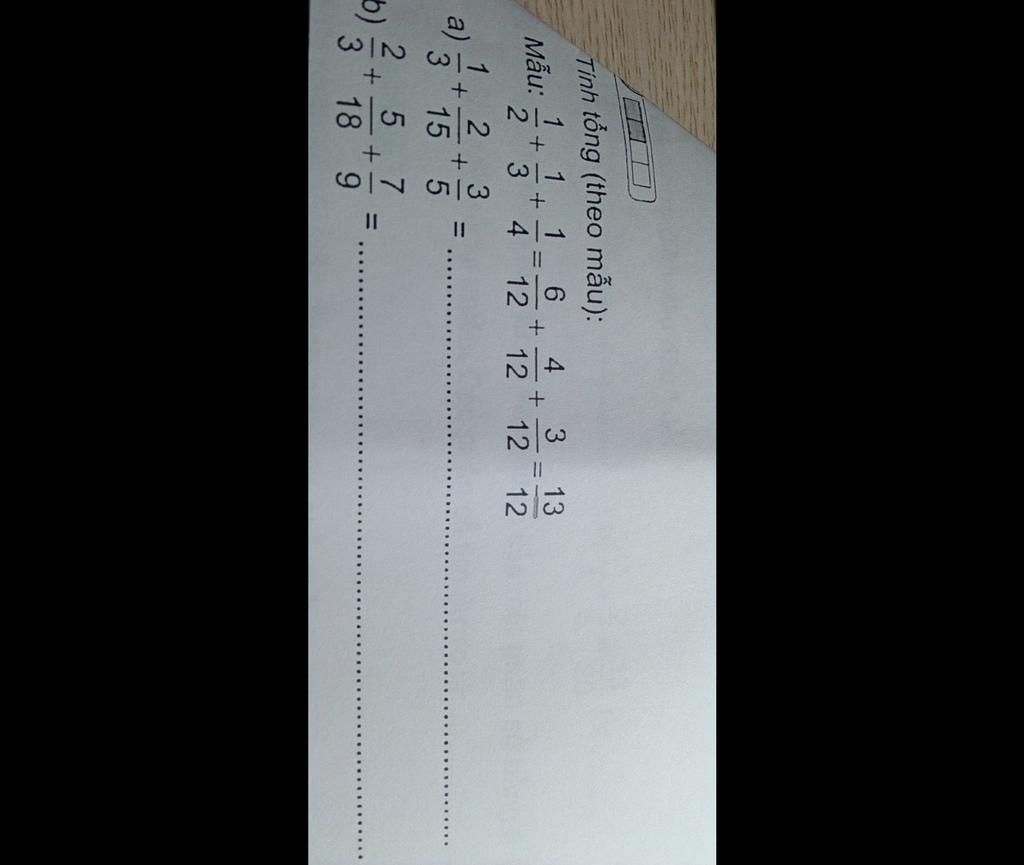 Tính tổng (theo mẫu):
Mẫu: 1/2 + 1/3 + 1/4 = 6/12 + 4/12 + 3/12 = 13/12
a) 1/3 + 2/15 + 3/5 = ........................................
b) 2/3 + 5/18 + 7/9 = ........................................